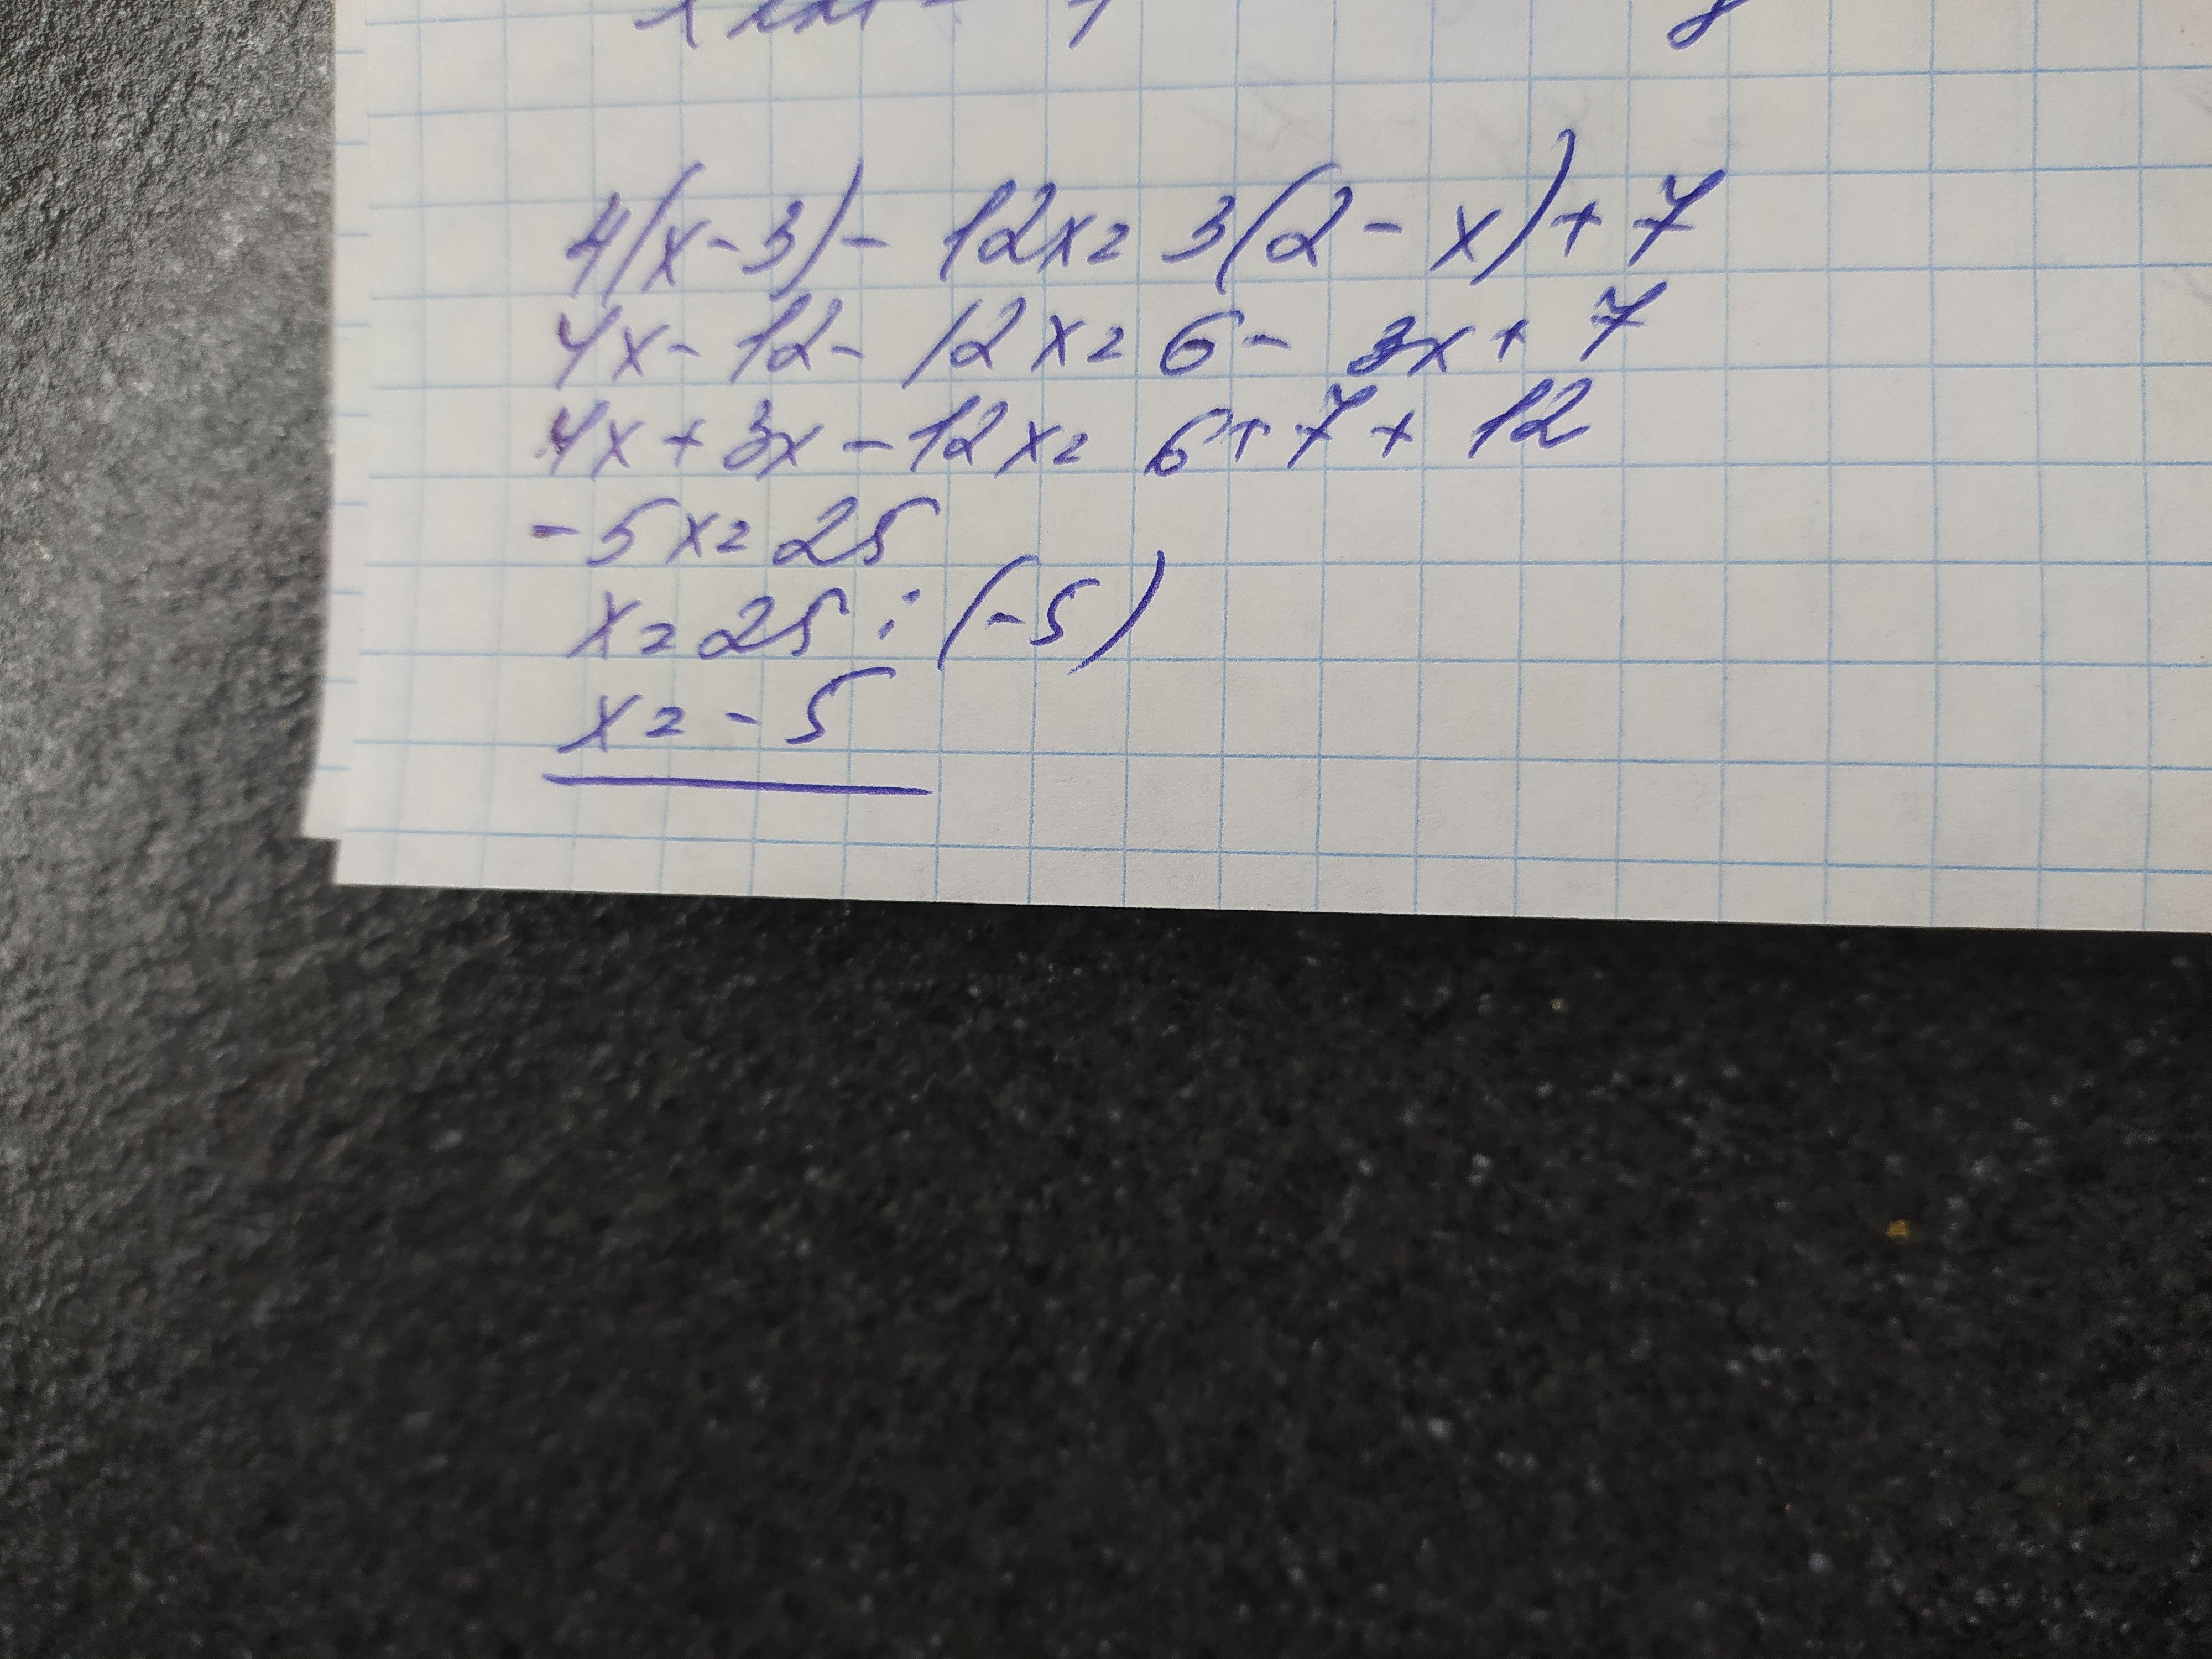 4(x-3)- 12x= 3(2-x)+7
4x-12-12x=6-3x+7
4x+3x-12x=6+7+12
-5x=25
x=25:(-5)
x=-5